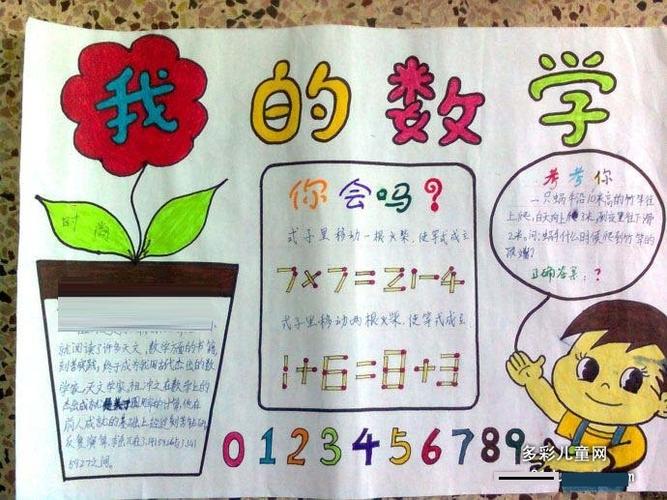 我的数学
时尚
你会吗?
式子里移动一根火柴,使等式成立
7×7=21-4
式子里移动两根火柴,使等式成立
1+6=8+3
考考你
一只蜗牛沿10米高的竹竿往
上爬,白天向上爬3米,到夜里往下滑
2米,问:蜗牛什么时候爬到竹竿的
顶端?
正确答案:?
就阅读了许多天文、数学方面的书籍
刻苦实践,终于成为我国古代杰出的数
学家、天文学家。祖冲之在数学上的
杰出成就是关于圆周率的计算,他在
前人成就的基础上经过刻苦钻研,
反复演算,求出π在3.1415926与3.141
5927之间。
0123456789
多彩儿童网